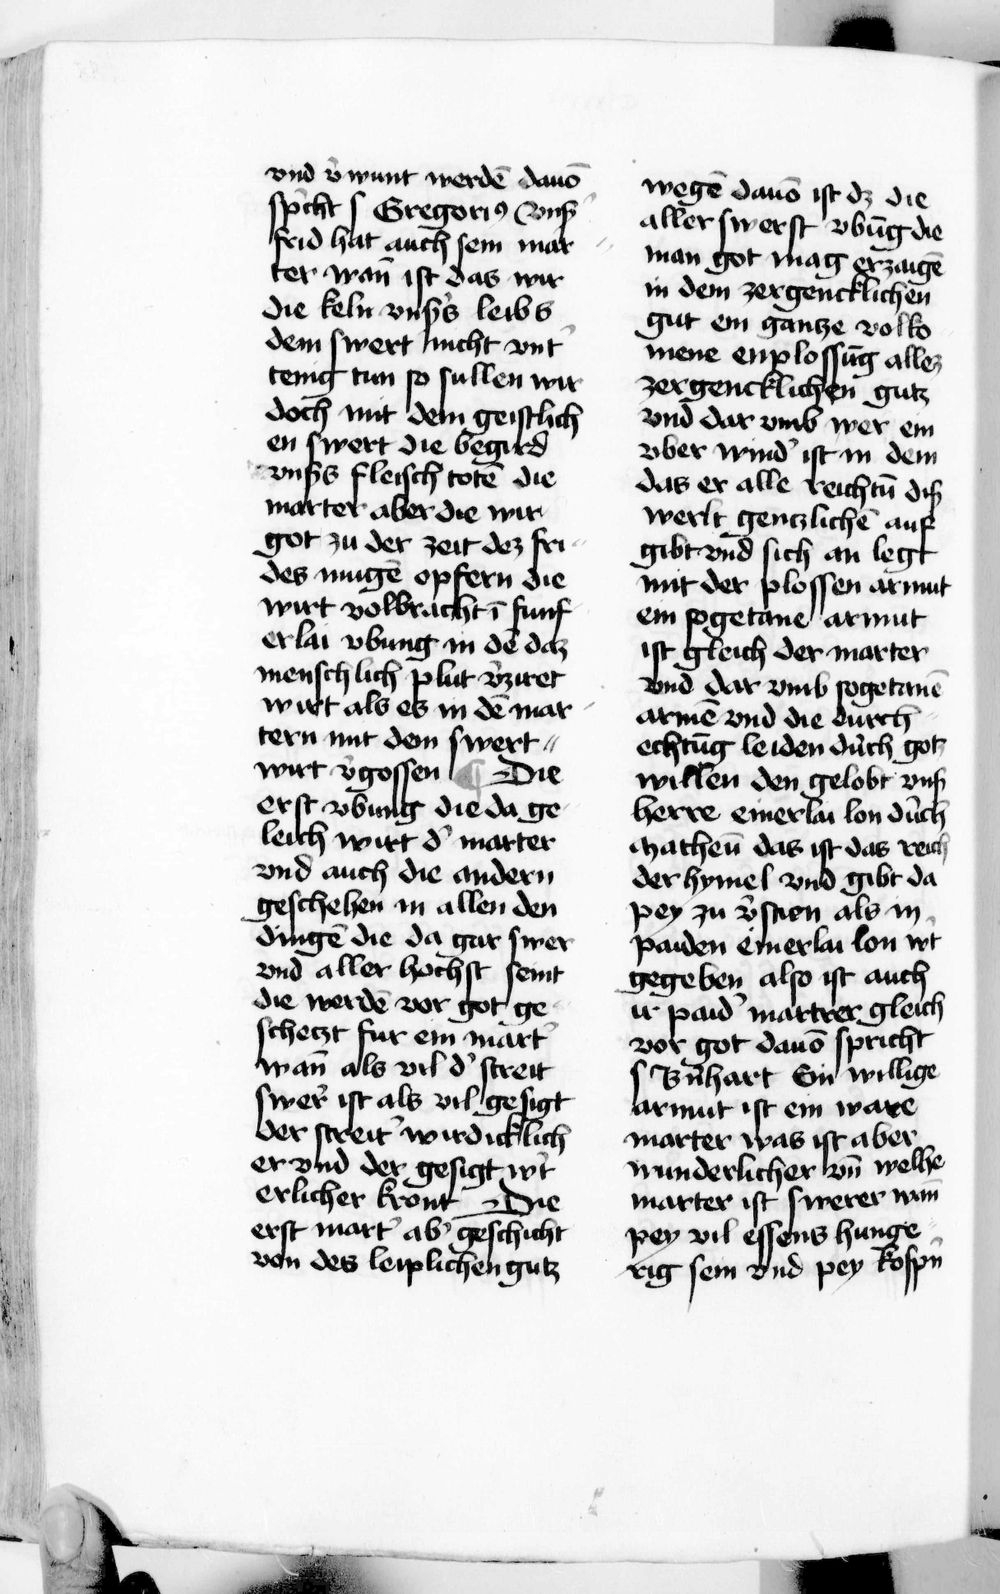 vnd v̉wunt werdē dauō
sp̃cht s Gregori9 Vnß̉
frid hat auch sein mar
ter wañ ist das wir
die keln vnß̉s leibs
dem swert nicht vnt̉
tenig tun so sullen wir
doch mit dem geistlich
en swert die begird
vnß̉s fleisch totē die
marter aber die wir
got zu der zeit dez fri
des mugē opfern die
wirt volbracht ī funf
erlai vbung in dē daz
menschlich plut v̉ziret
wirt als es in dē mar
tern mit dem swert
wirt v̉gossen ¶ Die
erst vbung die da ge
leich wirt d̉ marter
vnd auch die andern
geschehen in allen den
dingē die da gar swer
vnd aller hochst seint
die werdē vor got ge
schetzt fur ein mart̉
wañ als vil d̉ streit
swer̉ ist als vil gesigt
der streit̉ wirdicklich
er vnd der gesigt wt̉
erlicher kront Die
erst mart̉ ab̉ geschicht
von des leiplichen gutz
wegē dauō ist dz die
aller swerst vbūg die
man got mag erzaigē
in dem zergencklichen
gut ein gantze volko
mene enplossūg allez
zergencklichen gutz
vnd dar vmb wer ein
vber wind̉ ist in dem
das er alle reichtū diß
werlt gentzlichē auf
gibt vnd sich an legt
mit der plossen armut
ein sogetane armut
ist gleich der marter
vnd dar vmb sogetanē
armē vnd die durch
echtūg leiden durch gotz
willen den gelobt vnß̉
herre einerlai lon durch
Matheū das ist das reich
der hymel vnd gibt da
pey zu v̉stien als in
paiden einerlai lon wt̉
gegeben also ist auch
ir paid̉ martrer gleich
vor got dauō spricht
s Bn̉hart Ein willige
armut ist ein ware
marter was ist aber
wunderlicher vñ welhe
marter ist swerer wañ
pey vil essens hunge
rig sein vnd pey kospñ